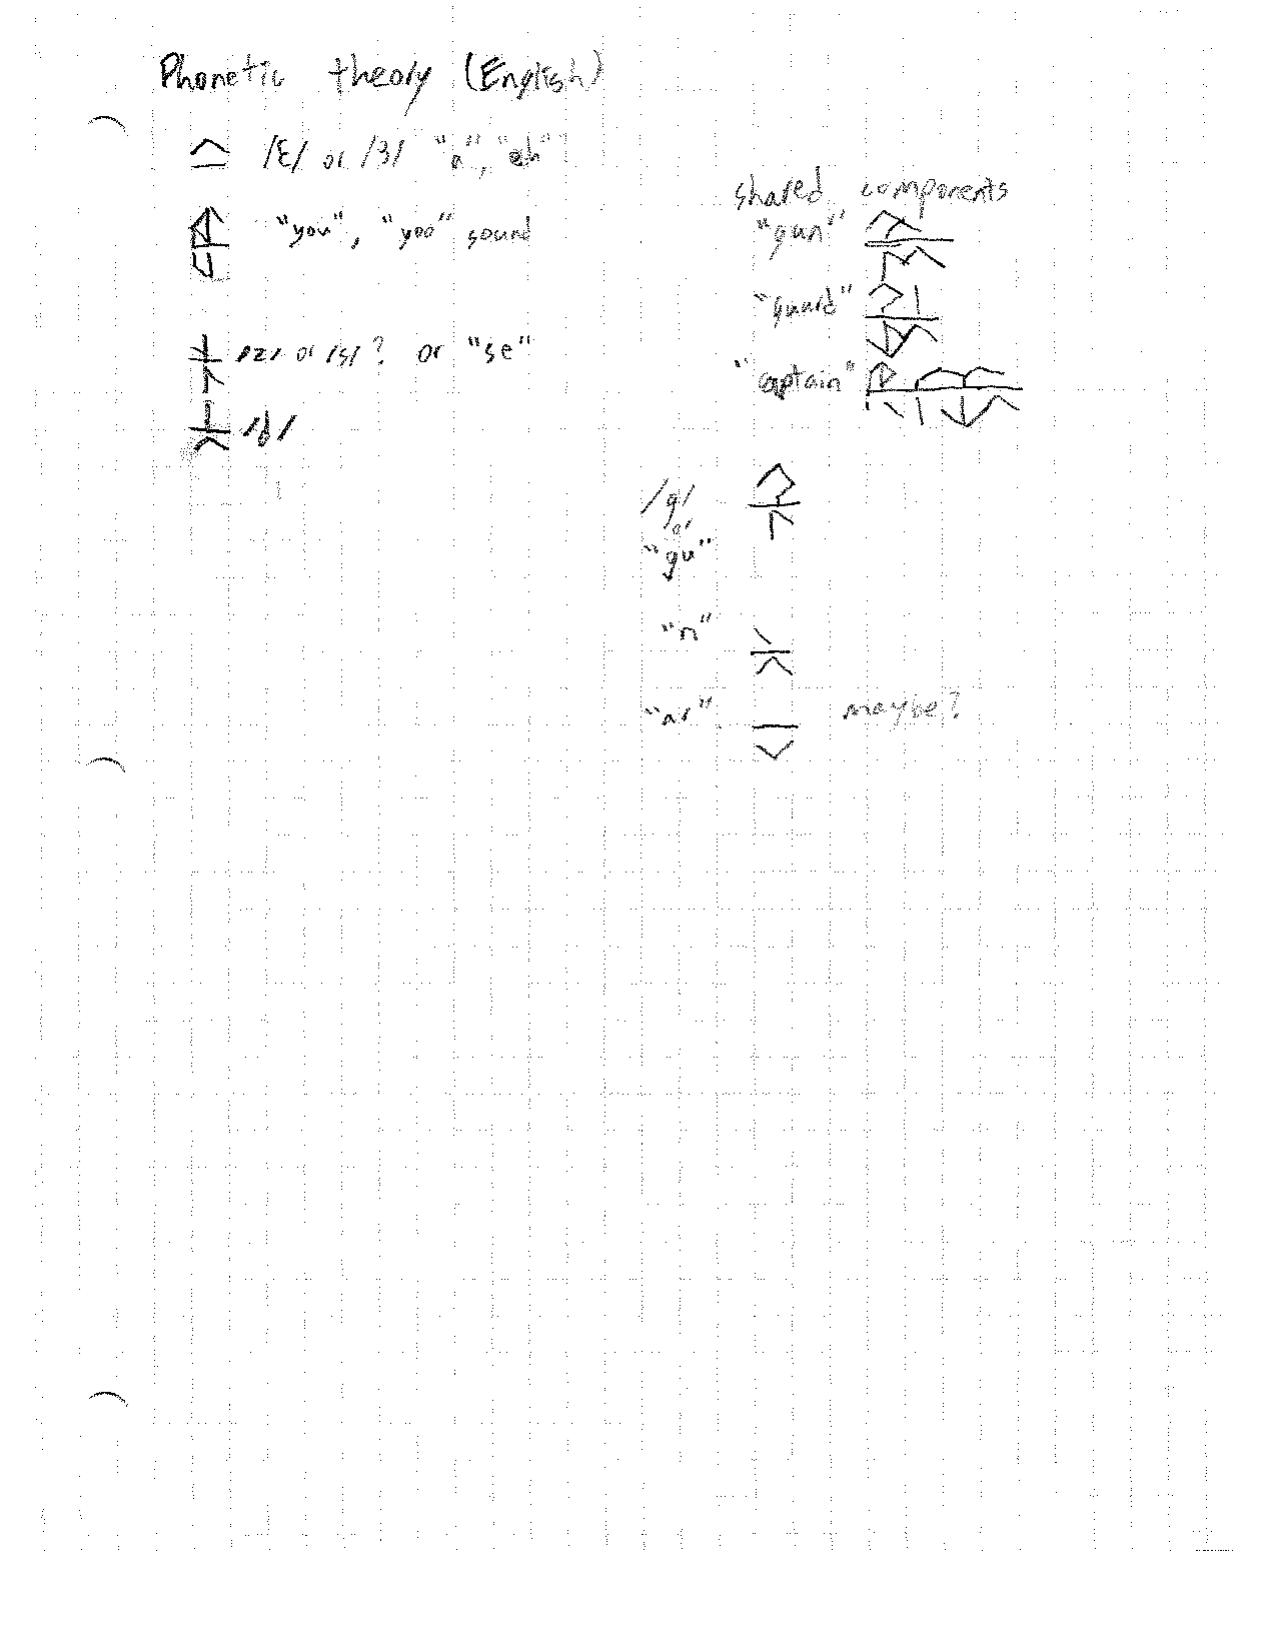 Phonetic theory (English)
/ɛ/ or /ɜ/ "a", "eh"
"you", "yoo" sound
/z/ or /s/? or "se"
/d/
shared components
"gun"
"guard"
"captain"
/g/
or
"gu"
"n"
"ar" maybe?